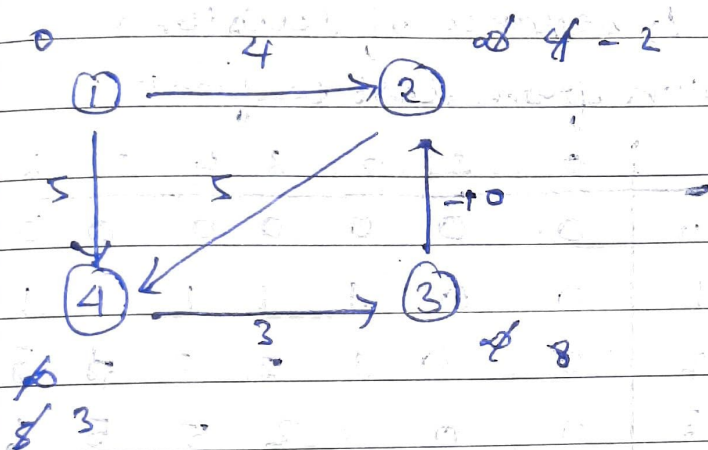 0 4 ∞ 4 - 2
1 2
5 5 -10
4 3
3
∞ 8
∞
5 3